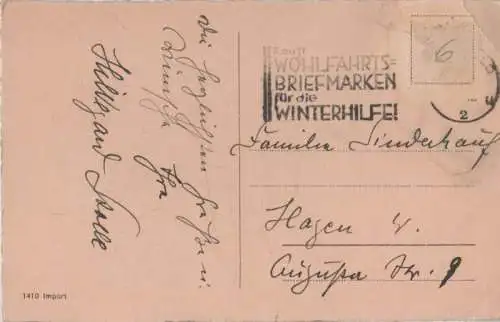 Die herzlichsten Grüße u.
Wünsche
Ihre
Hildegard Stolle
Kauft
WOHLFAHRTS=
BRIEFMARKEN
für die
WINTERHILFE!
6
2
Familie Linderhaus
Hagen i/.
Augusta Str. 9
1410 Import